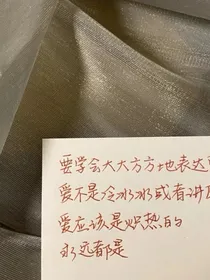 要学会大大方方地表达
爱不是冷冰冰或者讲
爱应该是炽热的
永远都是